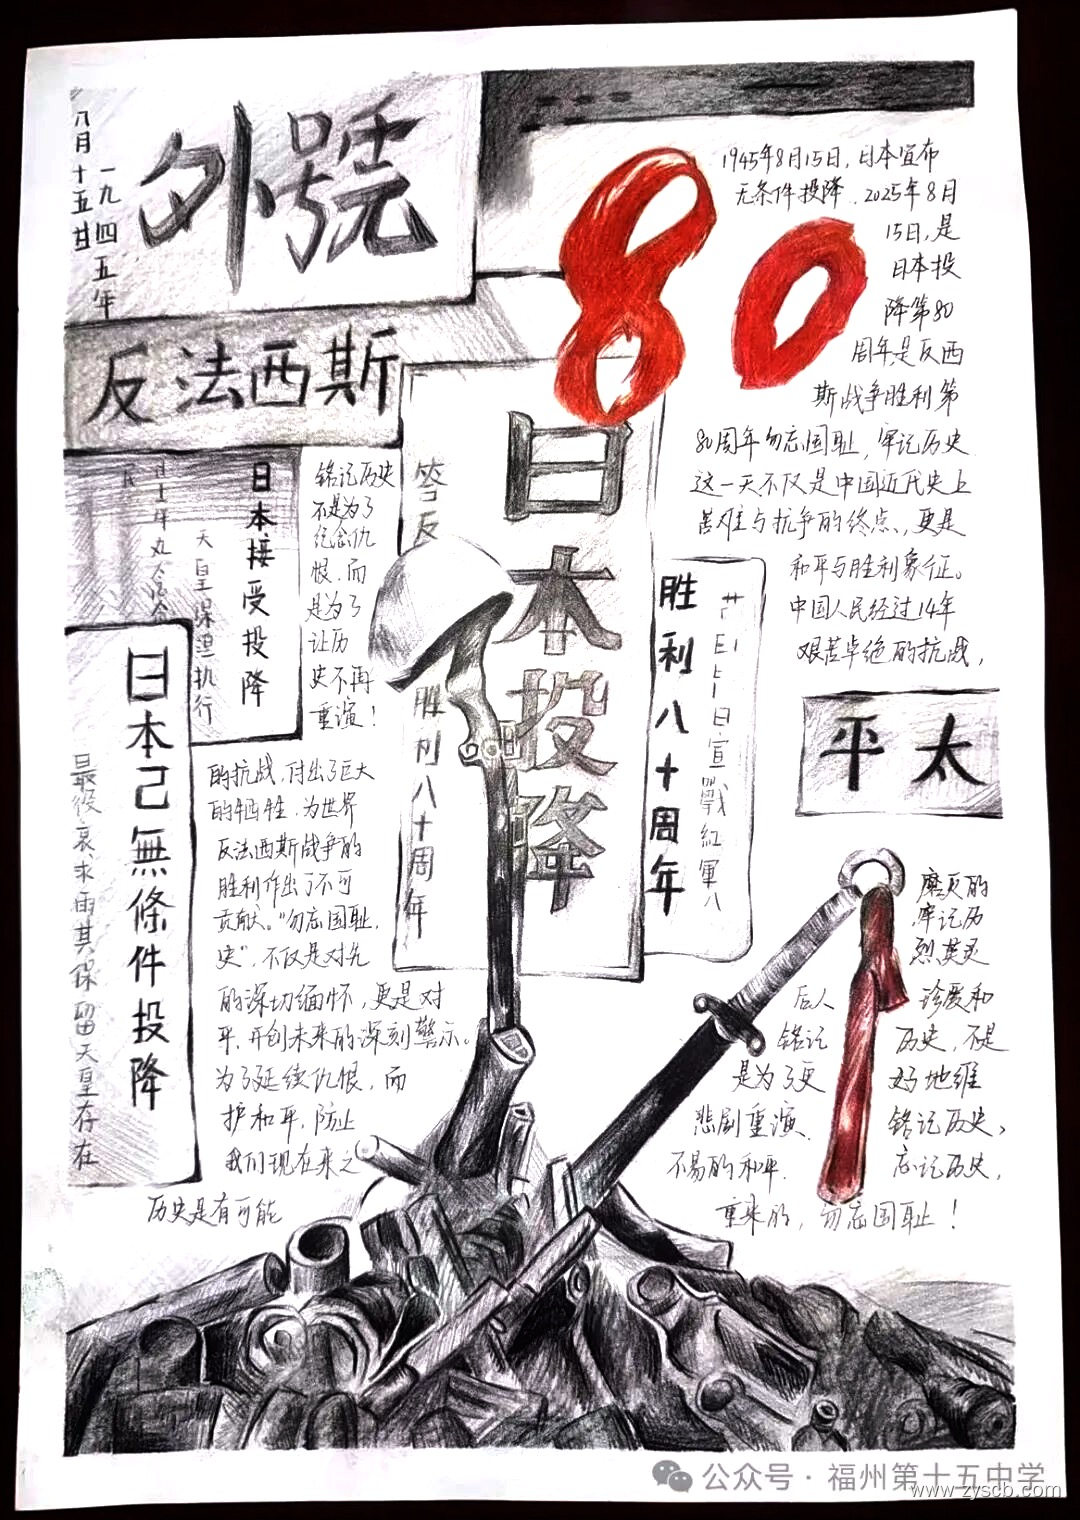 外號
一九四五年
八月十五廿
反法西斯
80
1945年8月15日,日本宣布
无条件投降.2025年8月
15日,是
日本投
降第80
周年,是反西
斯战争胜利第
80周年勿忘国耻,牢记历史
这一天不仅是中国近代史上
苦难与抗争的终点,更是
和平与胜利象征。
中国人民经过14年
艰苦卓绝的抗战,
日本投降
答反
胜利八十周年
胜利八十周年
日宣戰紅軍八
日本接受投降
天皇保證执行
铭记历史
不是为了
纪念仇
恨,而
是为了
让历
史不再
重演!
日本己無條件投降
最後哀求由其保留天皇存在
太平
的抗战,付出了巨大
的牺牲.为世界
反法西斯战争的
胜利作出了不可
贡献。"勿忘国耻,
史",不仅是对先
的深切缅怀,更是对
平,开创未来的深刻警示。
为了延续仇恨,而
护和平,防止
我们现在来之
历史是有可能
磨灭的
牢记历
烈英灵
后人 珍爱和
铭记 历史,不是
是为了更 好地维
悲剧重演. 铭记历史,
不易的和平. 忘记历史,
重来的,勿忘国耻!
公众号·福州第十五中学
www.zyscb.com